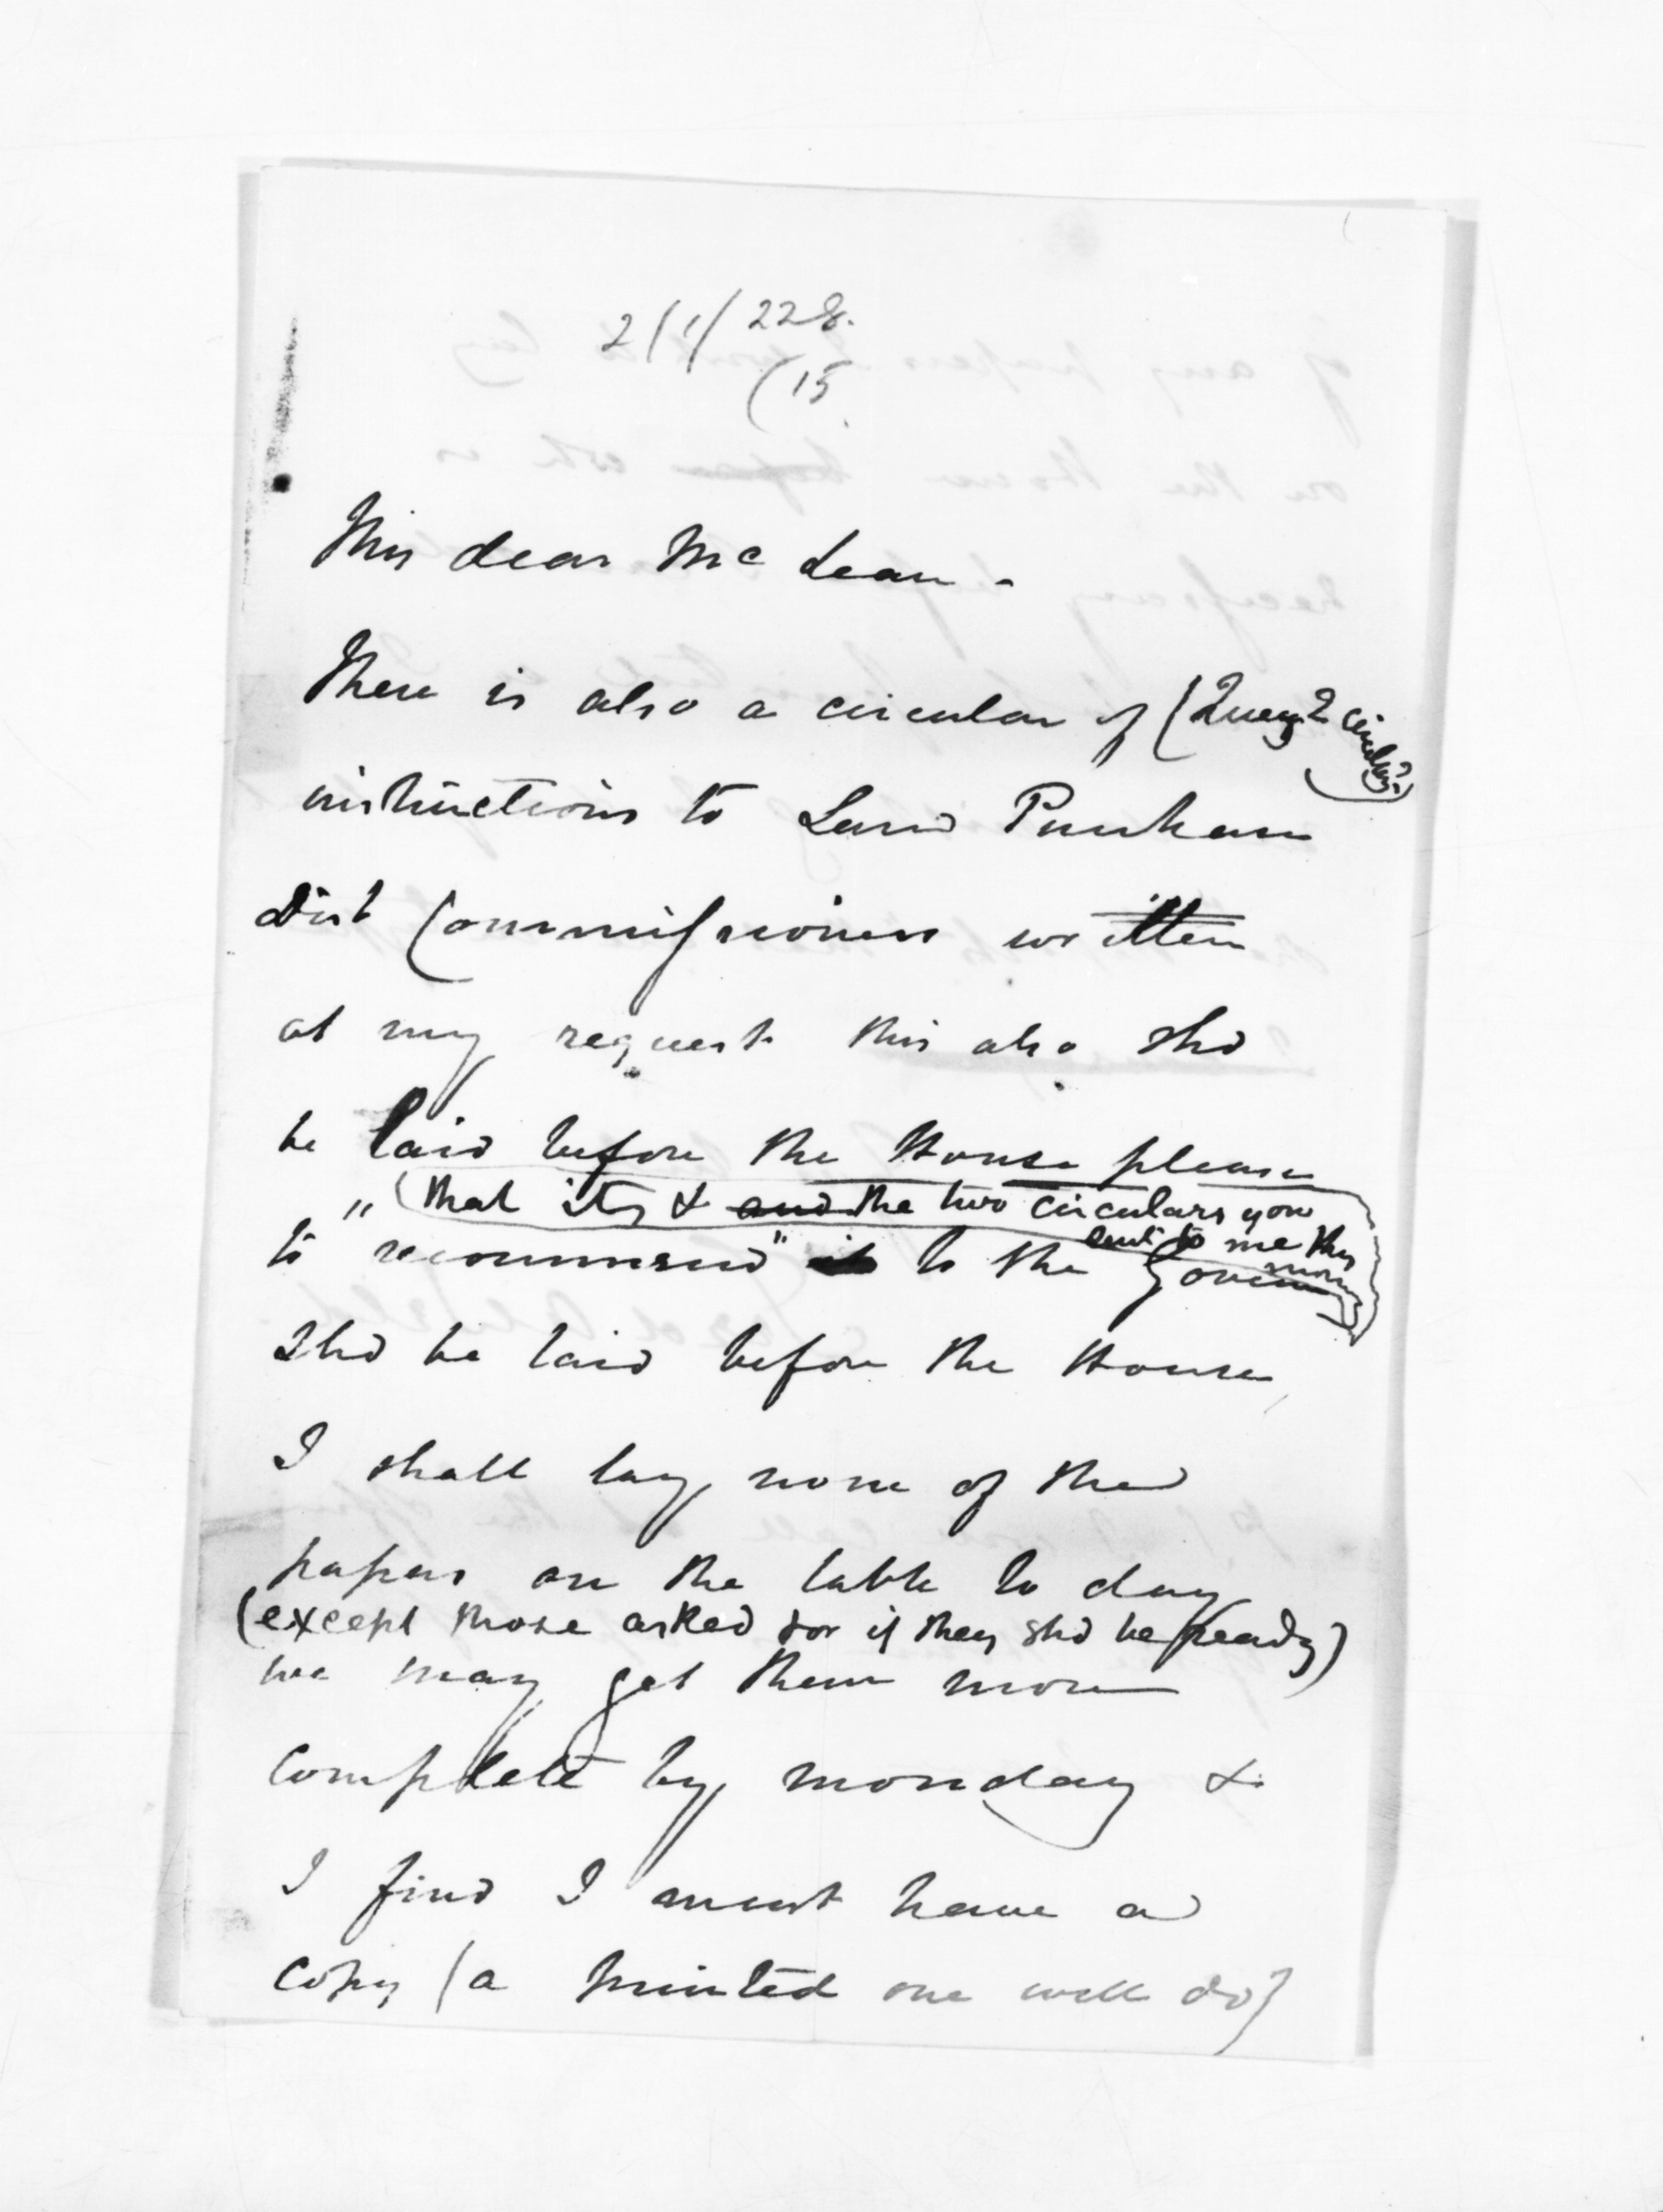 2/1/228.
(15
My dear McLean -
There is also a circular of (Query 2 circulars?)
instructions to Land Purchase
Dist Commissioners written
at my request this also shd
be laid before the House please
" (that it, & and the two circulars you
sent to me this
morng
to recommend" it to the Governor
shd be laid before the House
I shall lay none of the
papers on the table to day
(except those asked for if they shd be ready)
we may get them more
complete by monday &
I find I must have a
copy (a printed one will do)